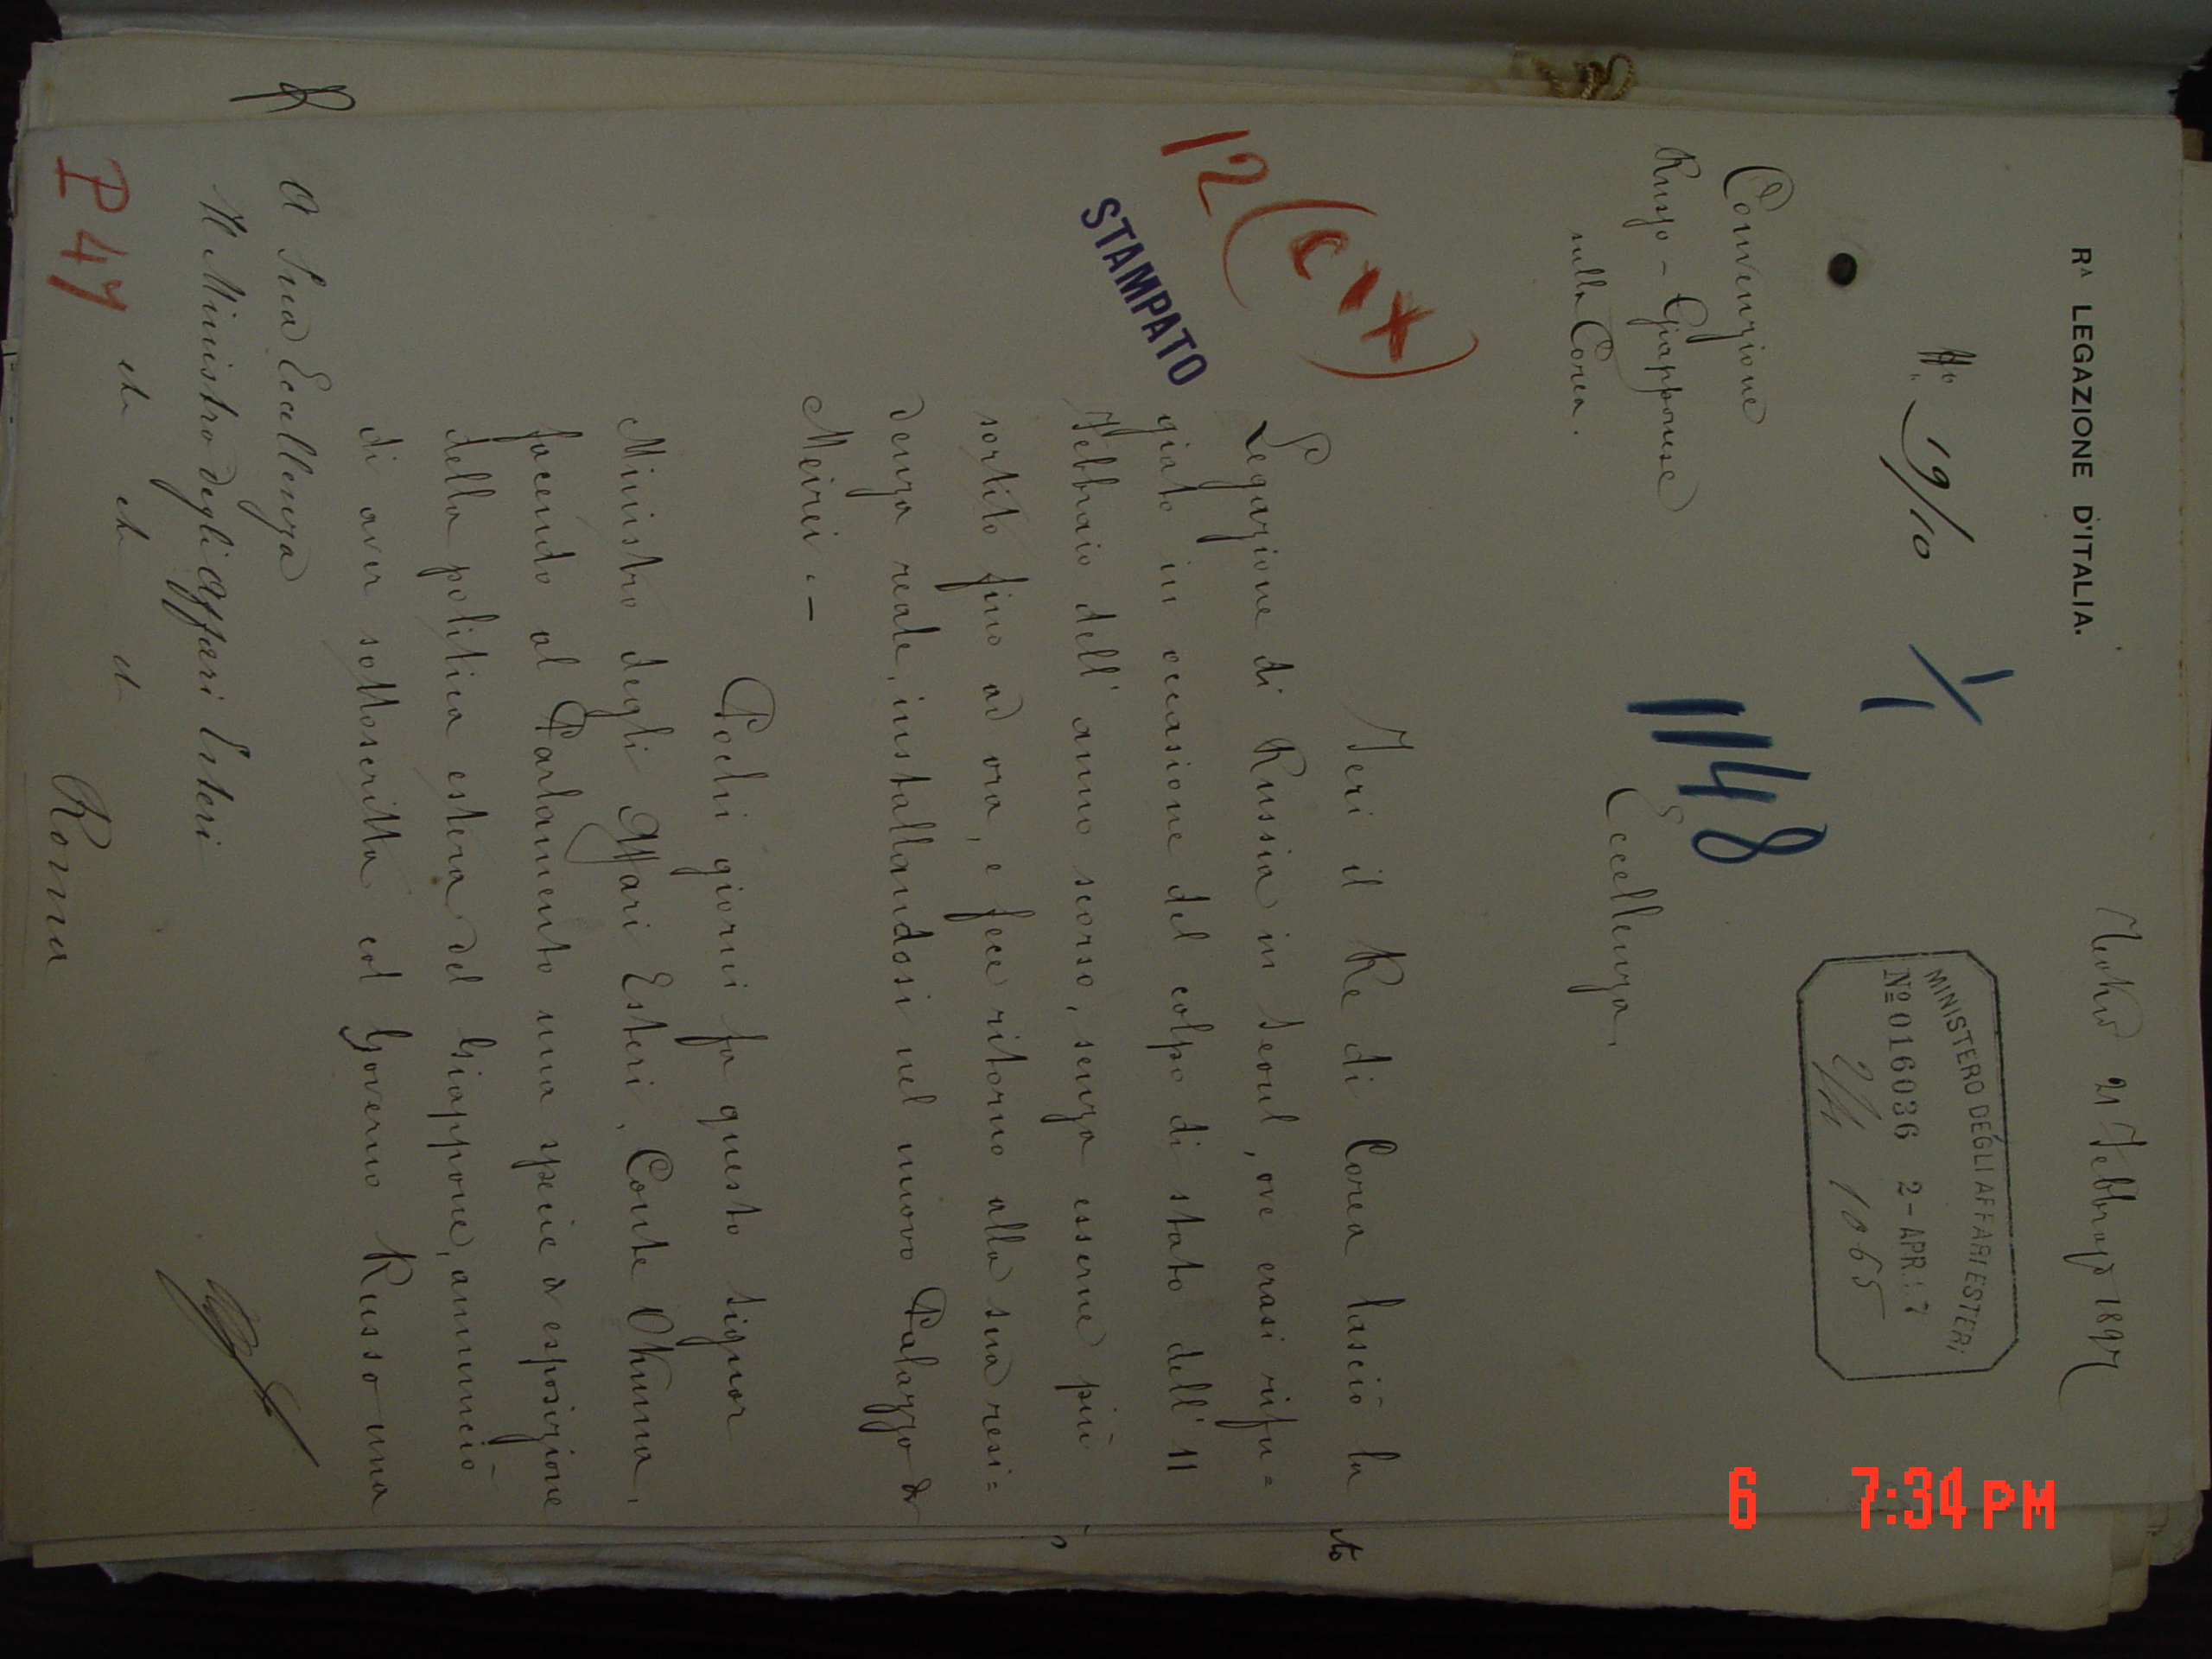 Rᴬ LEGAZIONE D'ITALIA.
Tokio 21 Febbrajo 1897
Nº 19/10
1/1
MINISTERO DEGLI AFFARI ESTERI
Nº 016036 2-APR.97
1065
Convenzione
Russo-Giapponese
sulla Corea.
1148
Eccellenza,
12 (CIX)
STAMPATO
Jeri il Re di Corea lasciò la
Legazione di Russia in Seoul, ove erasi rifu=
giato in occasione del colpo di stato dell'11
Febbraio dell'anno scorso, senza esserne più
sortito fino ad ora, e fece ritorno alla sua resi=
denza reale, installandosi nel nuovo Palazzo di
Meirei.-
Pochi giorni fa questo Signor
Ministro degli Affari Esteri, Conte Okuma,
facendo al Parlamento una specie di esposizione
della politica estera del Giappone, annunciò
di aver sottoscritta col Governo Russo una
A Sua Eccellenza
Il Ministro degli Affari Esteri
etc etc etc
Roma
P 47
6 7:34 PM